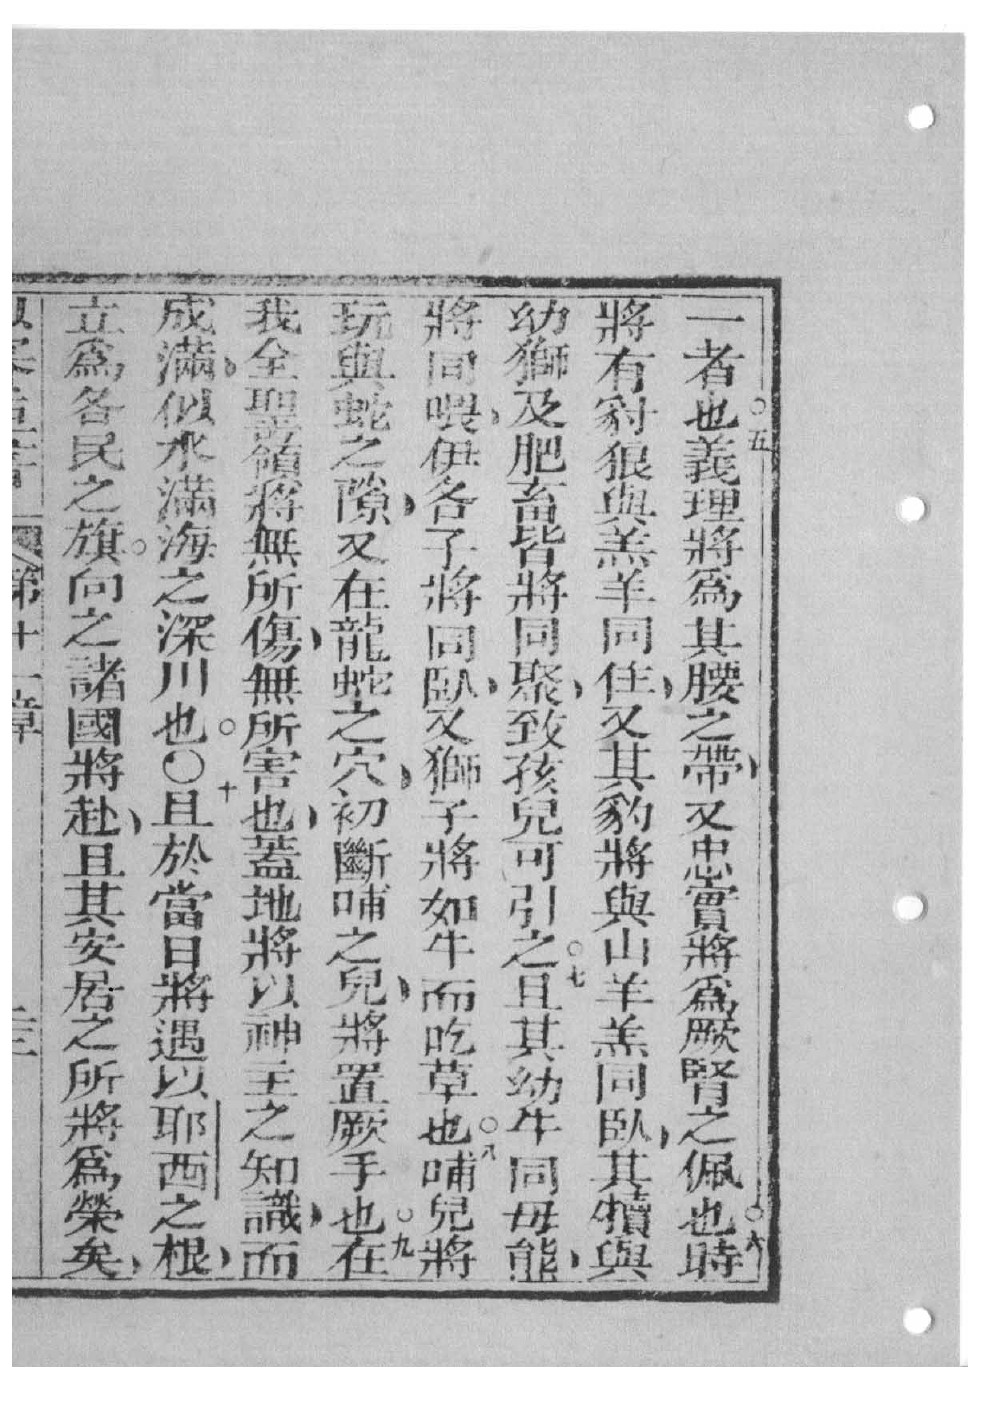 一者也○五義理將為其腰之帶又忠實將為厥腎之佩也○六時
將有豺狼與羔羊同住又其豹將與山羊羔同臥其犢與
幼獅及肥畜皆將同聚致孩兒可引之○七且其幼牛同母熊
將同喂伊各子將同臥又獅子將如牛而吃草也○八哺兒將
玩與蛇之隙又在龍蛇之穴初斷哺之兒將置厥手也○九在
我全聖嶺將無所傷無所害也蓋地將以神主之知識而
成滿似水滿海之深川也○十且於當日將遇以耶西之根
立為各民之旗向之諸國將赴且其安居之所將為榮矣
第十一章
三